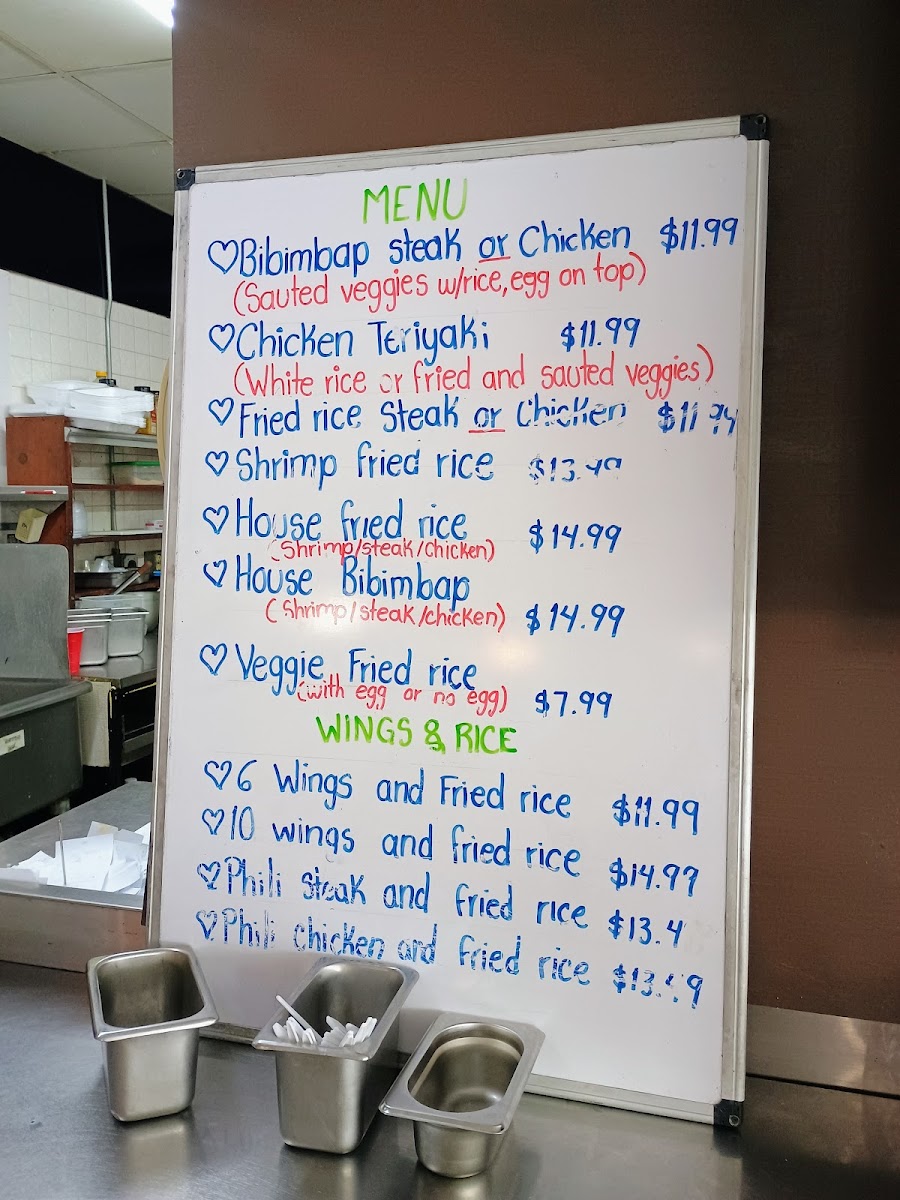 MENU
♡Bibimbap steak or Chicken $11.99
(Sauted veggies w/rice, egg on top)
♡Chicken Teriyaki $11.99
(White rice or fried and sauted veggies)
♡Fried rice Steak or Chicken
♡Shrimp fried rice
♡House fried rice $14.99
(Shrimp/steak/chicken)
♡House Bibimbap
(Shrimp/steak/chicken) $14.99
♡Veggie Fried rice
(with egg or no egg) $7.99
WINGS & RICE
♡6 Wings and Fried rice $11.99
♡10 wings and fried rice $14.99
♡Phili steak and fried rice
♡Phili chicken and fried rice